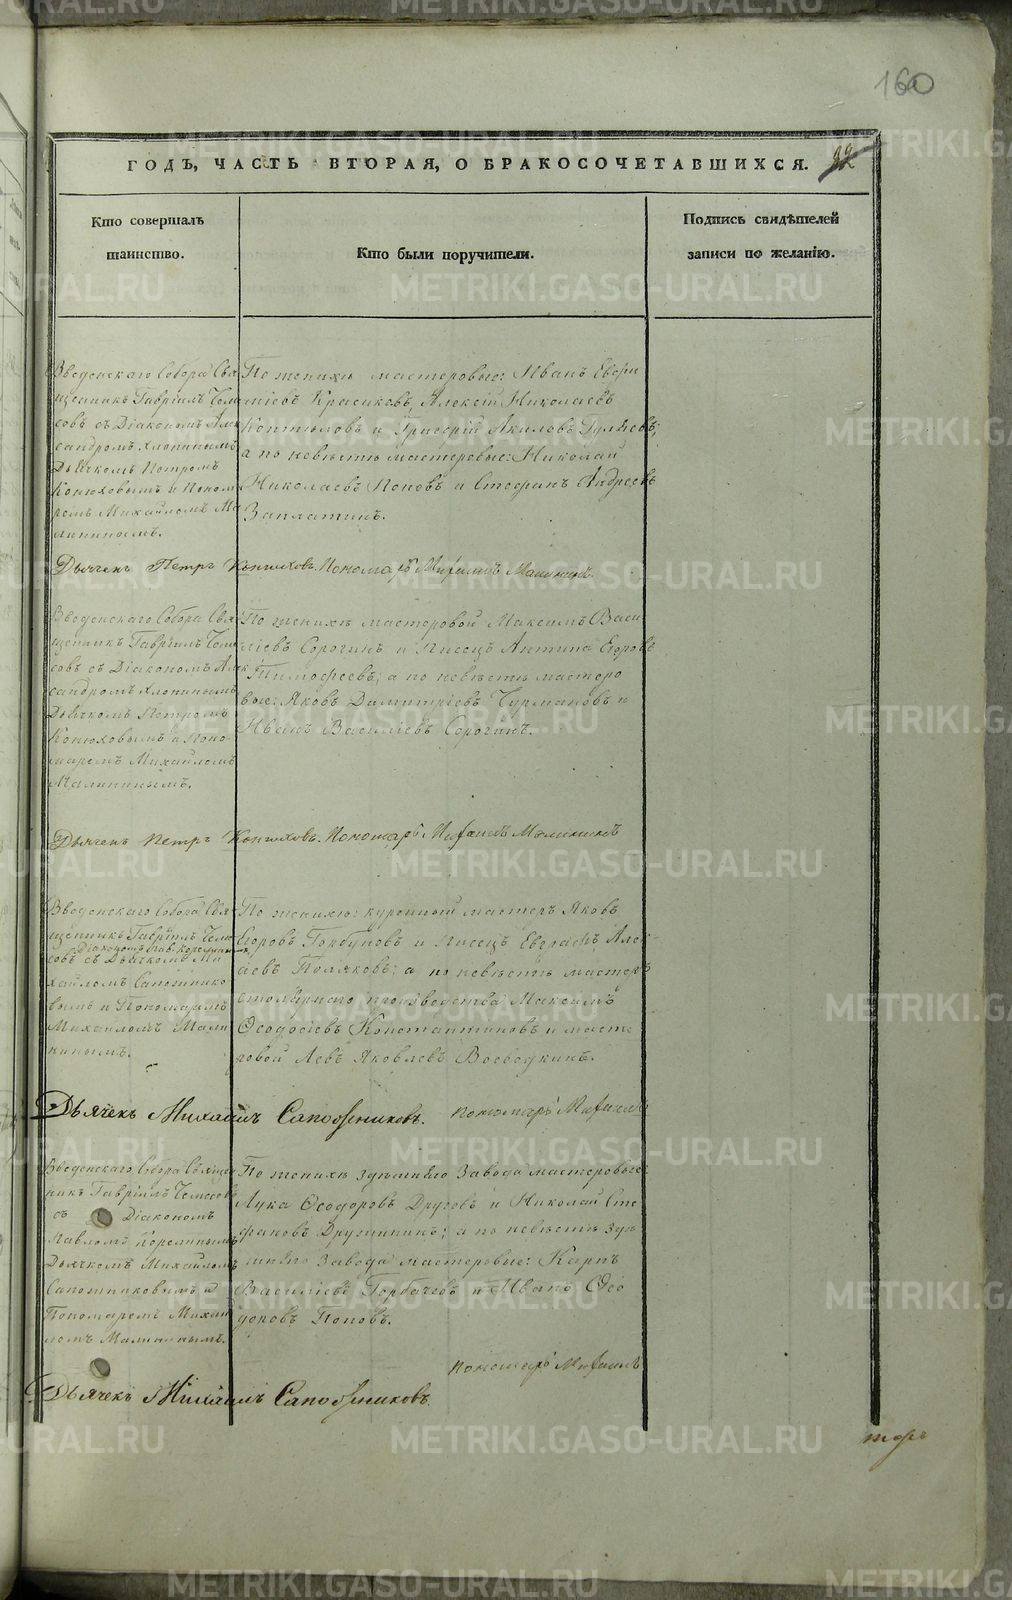 160
ГОДЪ, ЧАСТЬ ВТОРАЯ, О БРАКОСОЧЕТАВШИХСЯ.
22
Кто совершалъ
таинство.
Кто были поручители.
Подпись свидѣтелей
записи по желанію.
Введенскаго Собора Свя
щенникъ Гавріилъ
совъ съ Діакономъ Але
сандромъ Хлопинымъ
Дьячкомъ Петромъ
Конюховымъ и Поно
ремъ Михайломъ Ма
лининымъ.
По женихѣ мастеровые: Иванъ Евфи
міевъ Красиковъ, Алексѣй Николаевъ
Коптяловъ и Григорій Акиловъ Гуляевъ;
а по невѣстѣ мастеровые: Николай
Николаевъ Поповъ и Стефанъ Андреевъ
Заплатинъ.
Дьячекъ Петръ Конюховъ. Пономарь Михаилъ Малининъ
Введенскаго Собора Свя
щенникъ Гавріилъ
совъ съ Діакономъ Алек
сандромъ Хлопинымъ
Дьячкомъ Петромъ
Конюховымъ и Поно-
маремъ Михайломъ
Малининымъ.
По женихѣ мастеровой Максимъ Васи
ліевъ Сорогинъ и Писецъ Антипа Егоровъ
Тимофеевъ; а по невѣстѣ мастеро
вые: Яковъ Димитріевъ Чурмановъ и
Иванъ Василіевъ Сорогинъ.
Дьячекъ Петръ Конюховъ. Пономарь Михаилъ Малининъ
Введенскаго Собора Свя
щенникъ Гавріилъ
Діакономъ Пав. Корелинымъ
совъ съ Дьячкомъ Ми
хайломъ Сапожнико
вымъ и Пономаремъ
Михайломъ Мали
нинымъ.
По женихѣ: куренный мастеръ Яковъ
Егоровъ Горбуновъ и Писецъ Евграфъ Алек
сіевъ Поляковъ; а по невѣстѣ мастеръ
столярнаго производства Максимъ
Ѳеодосіевъ Константиновъ и масте
ровой Левъ Яковлевъ Воеводкинъ.
Дьячекъ Михаилъ Сапожниковъ. Пономарь Михаилъ
Введенскаго Собора Священ
никъ Гавріилъ
съ Діакономъ
Павломъ Корелинымъ
Дьячкомъ Михайломъ
Сапожниковымъ и
Пономаремъ Михаи
ломъ Малининымъ.
По женихѣ здѣшняго Завода мастеровые:
Лука Ѳеодоровъ Друговъ и Николай Сте
фановъ Дружининъ; а по невѣстѣ здѣ
шняго Завода мастеровые: Карпъ
Василіевъ Горбачевъ и Иванъ Ѳео
доровъ Поповъ.
Пономарь Михаилъ
Дьячекъ Михаилъ Сапожниковъ.
METRIKI.GASO-URAL.RU